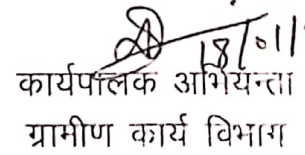 18/01/
कार्यपालक अभियन्ता
ग्रामीण कार्य विभाग